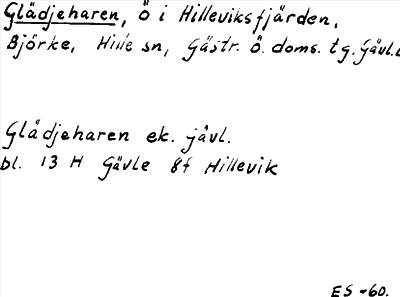 Glädjeharen, Ö i Hilleviksfjärden,
Björke, Hille sn, Gästr. Ö. doms. tg. Gävl.
Glädjeharen ek. jävl.
bl. 13 H Gävle 8f Hillevik
ES -60.